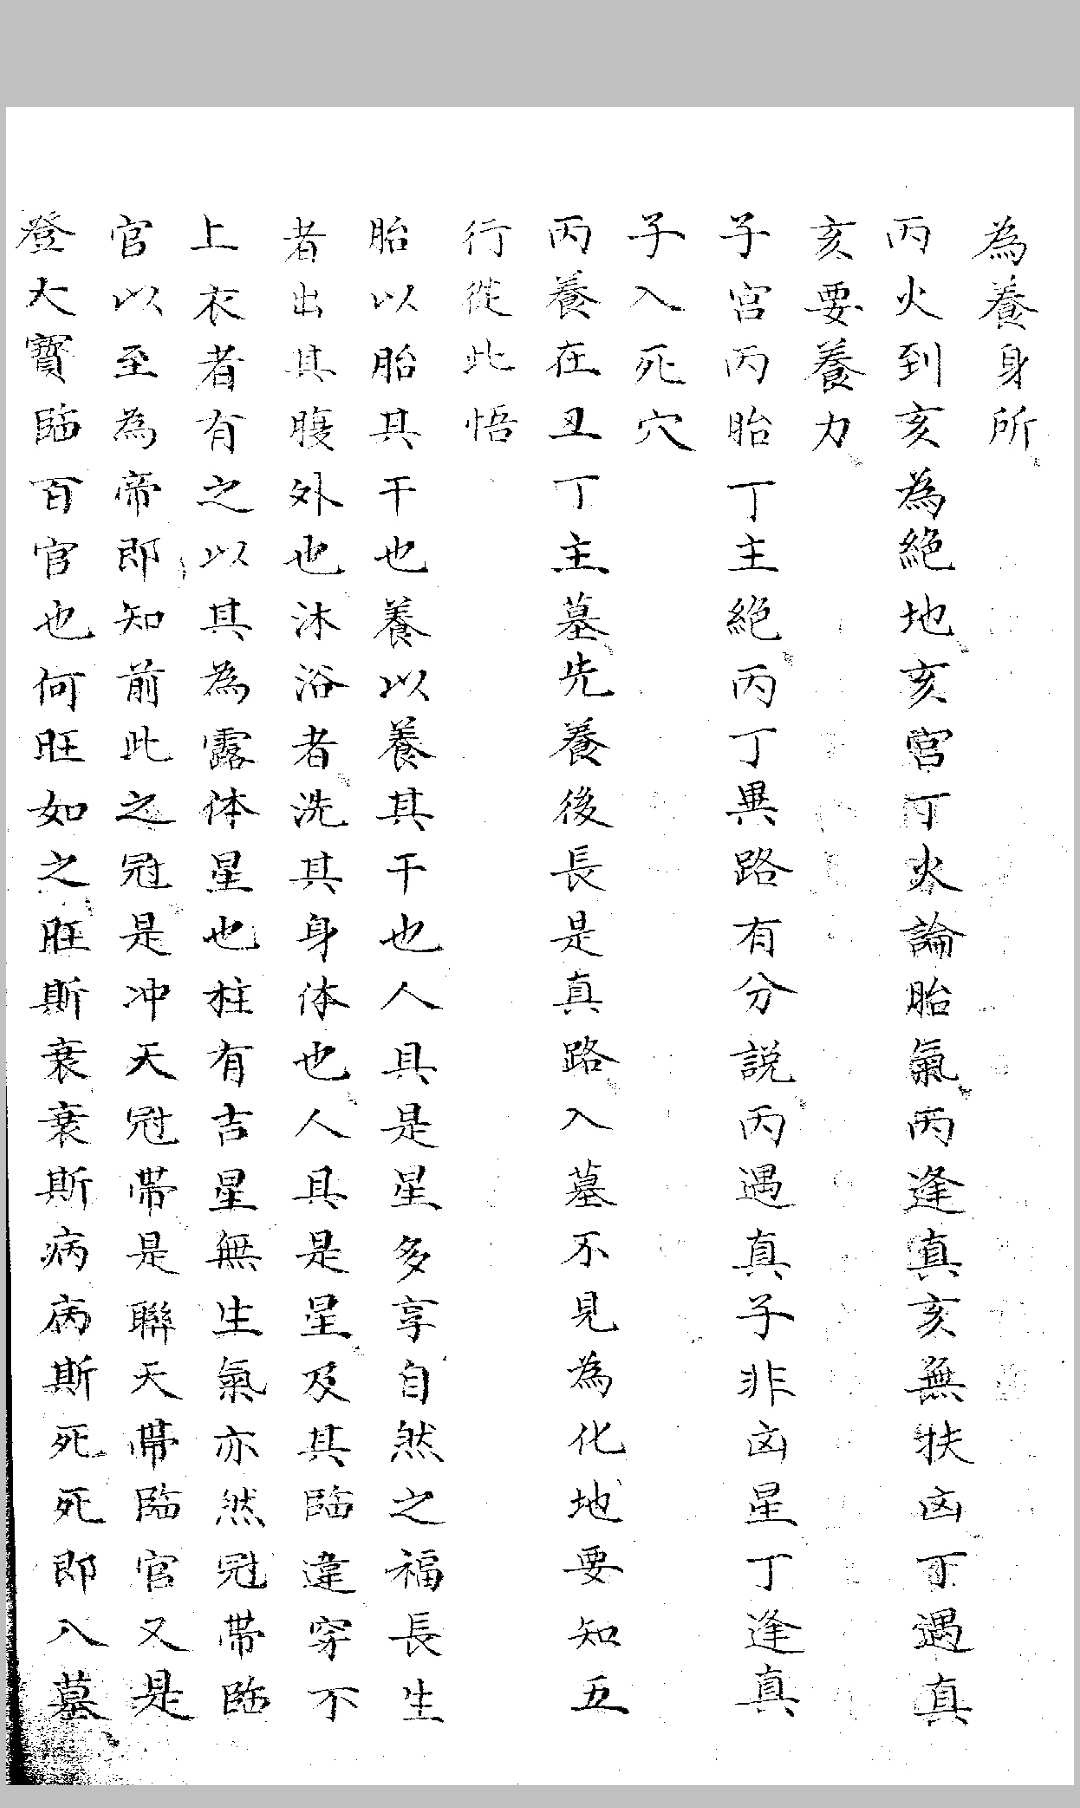 為養身所
丙火到亥為絕地亥宮丁火論胎氣丙逢真亥無扶凶丁遇真
亥要養力
子宮丙胎丁主絕丙丁異路有分說丙遇真子非凶星丁逢真
子入死穴
丙養在丑丁主墓先養後長是真路入墓不見為化地要知五
行從此悟
胎以胎其干也養以養其干也人具是星多享自然之福長生
者出其腹外也沐浴者洗其身体也人具是星及其臨違穿不
上衣者有之以其為露体星也柱有吉星無生氣亦然冠帶臨
官以至為帝即知前此之冠是冲天冠帶是聯天帶臨官又是
登大寶臨百官也何旺如之旺斯衰衰斯病病斯死死即入墓